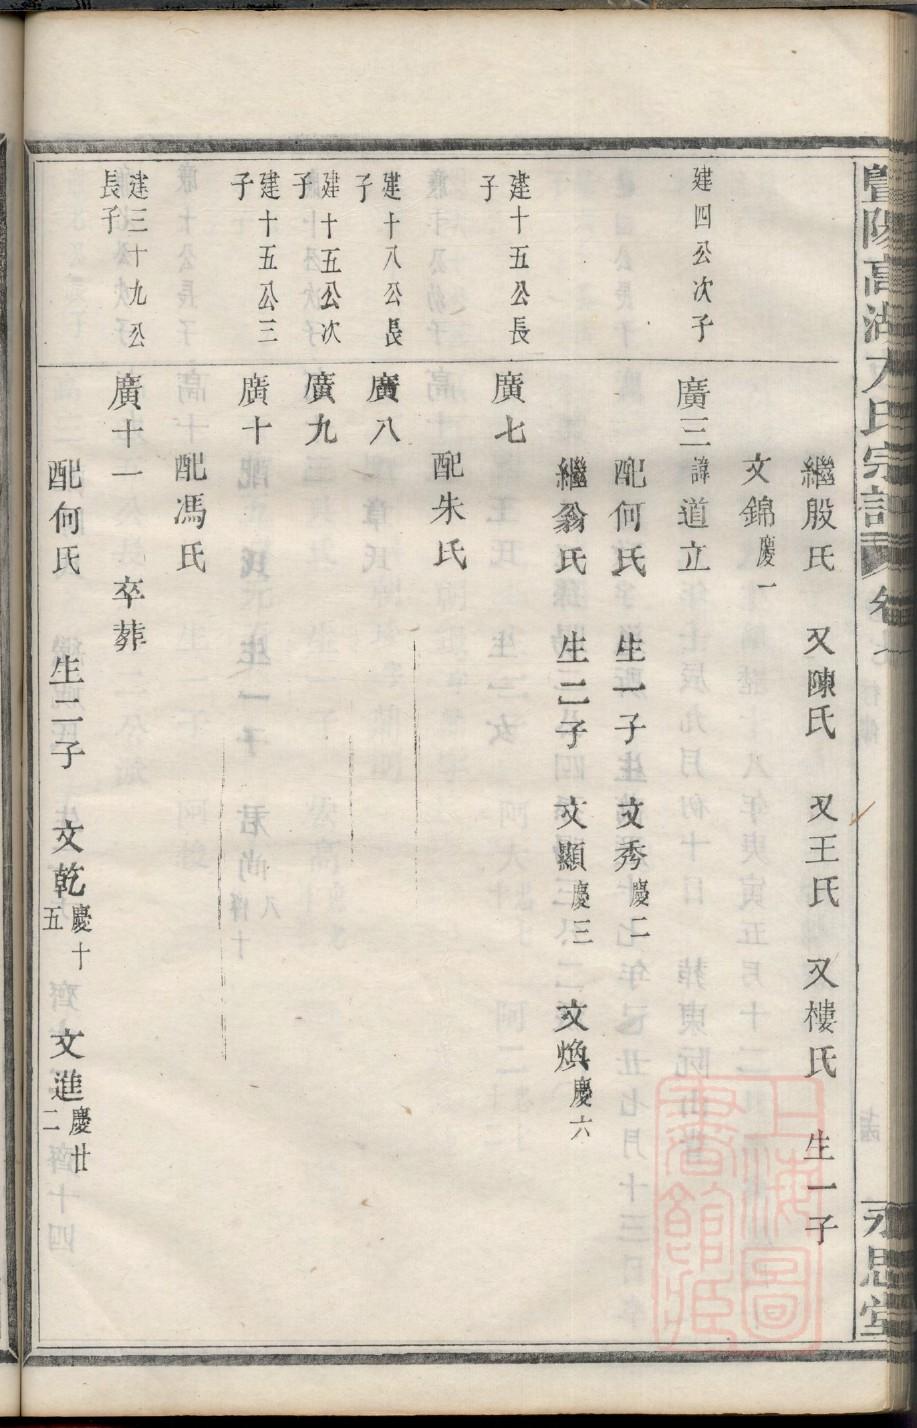 暨陽高湖方氏宗譜 卷七 永思堂
繼殷氏 又陳氏 又王氏 又樓氏 生一子
文錦慶一
建四公次子 廣三諱道立
配何氏 生一子 文秀慶二
繼翁氏 生二子 文顯慶三 文煥慶六
建十五公長子 廣七
配朱氏
建十八公長子 廣八
建十五公次子 廣九
建十五公三子 廣十
配馮氏
建三十九公長子 廣十一 卒葬
配何氏 生二子 文乾慶十五 文進慶廿二